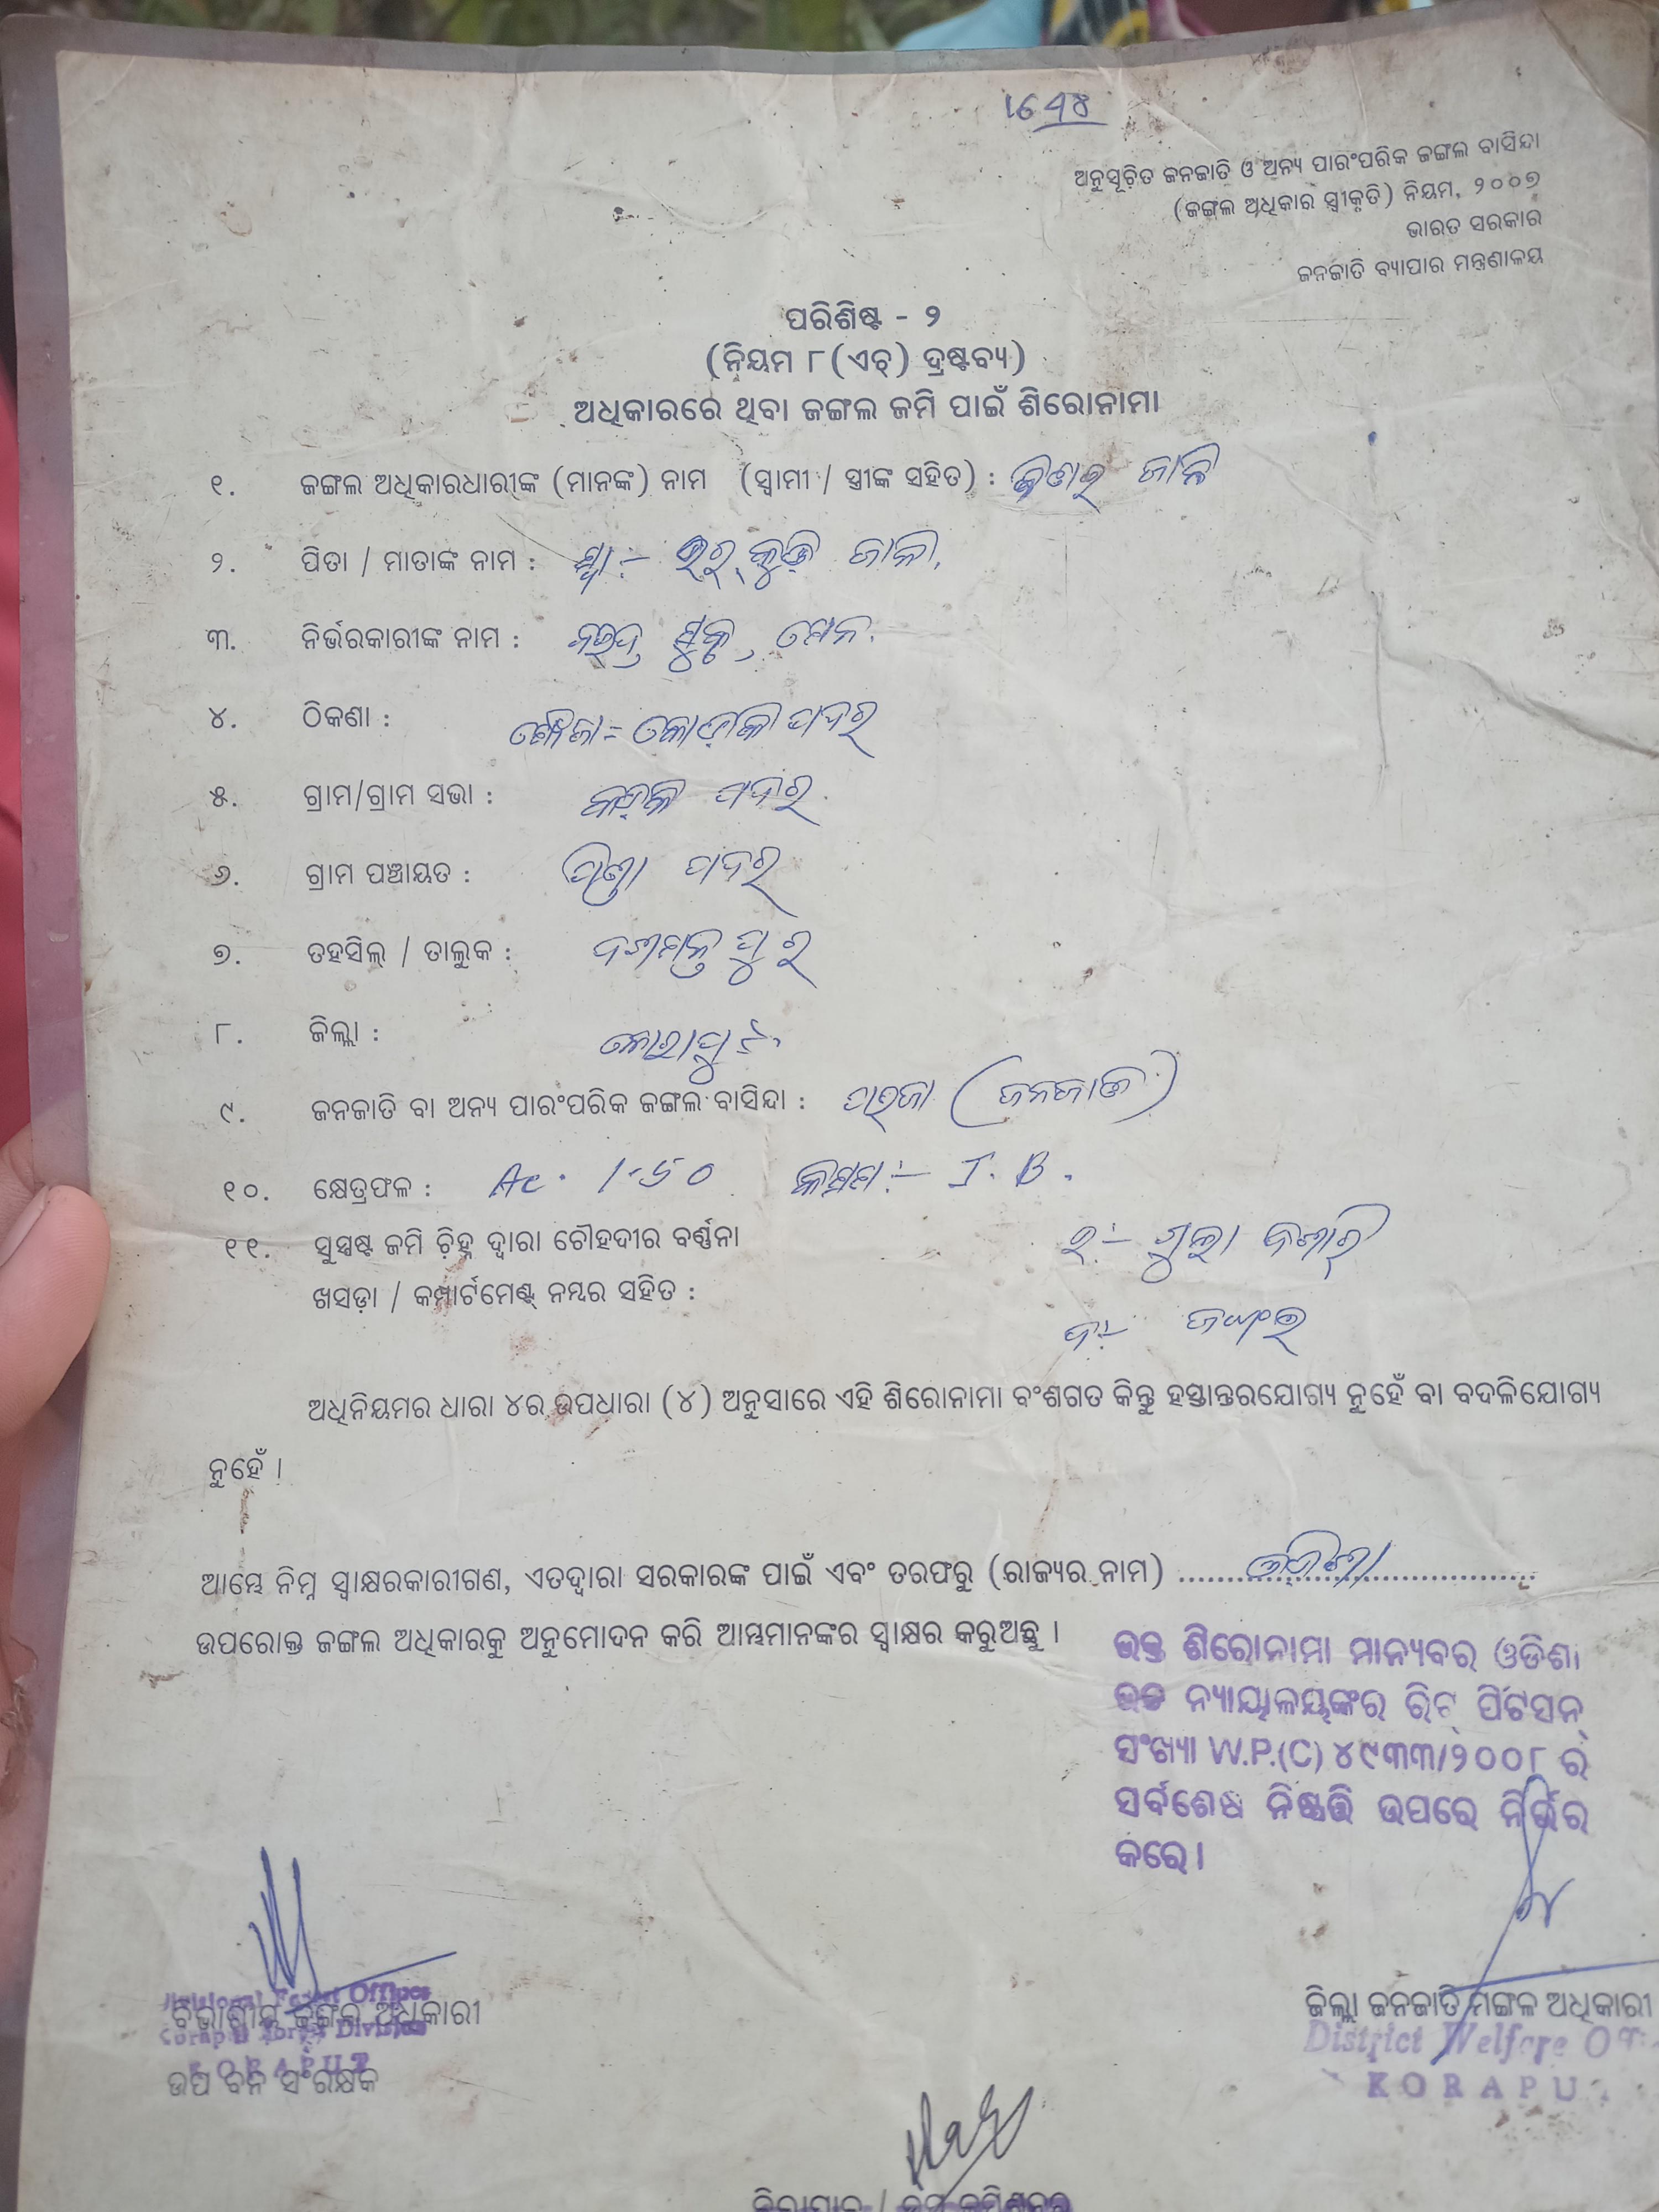 ଅନୁସୂଚିତ ଜନଜାତି ଓ ଅନ୍ୟ ପାରଂପରିକ ଜଙ୍ଗଲ ବାସିନ୍ଦା
(ଜଙ୍ଗଲ ଅଧିକାର ସ୍ୱୀକୃତି) ନିୟମ, ୨୦୦୭
ଭାରତ ସରକାର
ଜନଜାତି ବ୍ୟାପାର ମନ୍ତ୍ରଣାଳୟ
ପରିଶିଷ୍ଟ - ୨
(ନିୟମ ୮(ଏଚ୍) ଦ୍ରଷ୍ଟବ୍ୟ)
ଅଧିକାରରେ ଥିବା ଜଙ୍ଗଲ ଜମି ପାଇଁ ଶିରୋନାମା
୧. ଜଙ୍ଗଲ ଅଧିକାରଧାରୀଙ୍କ (ମାନଙ୍କ) ନାମ (ସ୍ୱାମୀ / ସ୍ତ୍ରୀଙ୍କ ସହିତ) : ଜାନି
୨. ପିତା / ମାତାଙ୍କ ନାମ : ଜାନି
୩. ନିର୍ଭରକାରୀଙ୍କ ନାମ :
୪. ଠିକଣା : ମୌଜା =
୫. ଗ୍ରାମ/ଗ୍ରାମ ସଭା : ପଦର
୬. ଗ୍ରାମ ପଞ୍ଚାୟତ : ପଦର
୭. ତହସିଲ୍ / ତାଲୁକ : ଦଶମନ୍ତପୁର
୮. ଜିଲ୍ଲା : କୋରାପୁଟ
୯. ଜନଜାତି ବା ଅନ୍ୟ ପାରଂପରିକ ଜଙ୍ଗଲ ବାସିନ୍ଦା : ପରଜା (ଜନଜାତି)
୧୦. କ୍ଷେତ୍ରଫଳ : Ac. 1-50 କିସମ :- J.B.
୧୧. ସୁସ୍ପଷ୍ଟ ଜମି ଚିହ୍ନ ଦ୍ୱାରା ଚୌହଦୀର ବର୍ଣ୍ଣନା
ଖସଡ଼ା / କମ୍ପାର୍ଟମେଣ୍ଟ୍ ନମ୍ବର ସହିତ :
ଦ:- ଜଙ୍ଗଲ
ଅଧିନିୟମର ଧାରା ୪ର ଉପଧାରା (୪) ଅନୁସାରେ ଏହି ଶିରୋନାମା ବଂଶଗତ କିନ୍ତୁ ହସ୍ତାନ୍ତରଯୋଗ୍ୟ ନୁହେଁ ବା ବଦଳିଯୋଗ୍ୟ
ନୁହେଁ ।
ଆମ୍ଭେ ନିମ୍ନ ସ୍ୱାକ୍ଷରକାରୀଗଣ, ଏତଦ୍ଦ୍ୱାରା ସରକାରଙ୍କ ପାଇଁ ଏବଂ ତରଫରୁ (ରାଜ୍ୟର ନାମ) ଓଡିଶା
ଉପରୋକ୍ତ ଜଙ୍ଗଲ ଅଧିକାରକୁ ଅନୁମୋଦନ କରି ଆମ୍ଭମାନଙ୍କର ସ୍ୱାକ୍ଷର କରୁଅଛୁ ।
ଉକ୍ତ ଶିରୋନାମା ମାନ୍ୟବର ଓଡିଶା
ଉଚ୍ଚ ନ୍ୟାୟାଳୟଙ୍କର ରିଟ୍ ପିଟିସନ୍
ସଂଖ୍ୟା W.P.(C) ୪୯୩୩/୨୦୦୮ ର
ସର୍ବଶେଷ ନିଷ୍ପତ୍ତି ଉପରେ ନିର୍ଭର
କରେ ।
Divisional Forest Officer
ବିଭାଗୀୟ ଜଙ୍ଗଲ ଅଧିକାରୀ
Koraput Forest Division
KORAPUT
ଉପ ବନ ସଂରକ୍ଷକ
ଜିଲ୍ଲା ଜନଜାତି ମଙ୍ଗଳ ଅଧିକାରୀ
District Welfare
KORAPUT
ଜିଲ୍ଲାପାଳ / ଉପ କମିଶନର